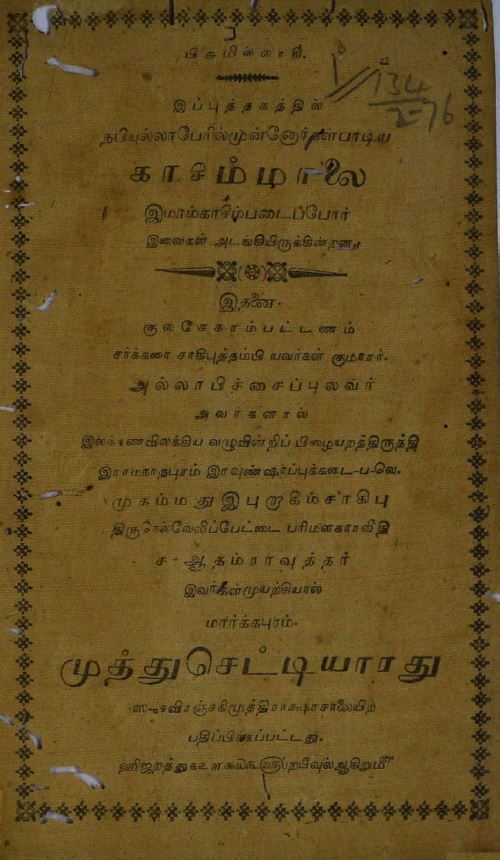 பிசுமில்லாகி.
134
2-76
இப்புத்தகத்தில்
நபியுல்லாபேரில்முன்னோர்கள்பாடிய
காசிம்மாலை
இமாம்காசிம்படைப்போர்
இவைகள் அடங்கியிருக்கின்றன.
இதனை.
குலசேகரம்பட்டணம்
சர்க்கரை சாகிபுத்தம்பி யவர்கள் குமாரர்.
அல்லாபிச்சைப்புலவர்
அவர்களால்
இலக்கணவிலக்கிய வழுவின்றிப் பிழையறத்திருத்தி
இராமநாதபுரம் இரவுண்ஷாப்புக்கடை-ப-வெ.
முகம்மதுஇபுறாகிம்சாகிபு
திருநெல்வேலிப்பேட்டை பரிமளகாரவீதி
ச - ஆதம்ராவுத்தர்
இவர்கள்முயற்சியால்
மார்க்கபுரம்.
முத்துசெட்டியாரது
முத்திராக்ஷரசாலையிற்
பதிப்பிக்கப்பட்டது.
ஹிஜறத்து றபீவுல்ஆகிறுமீ